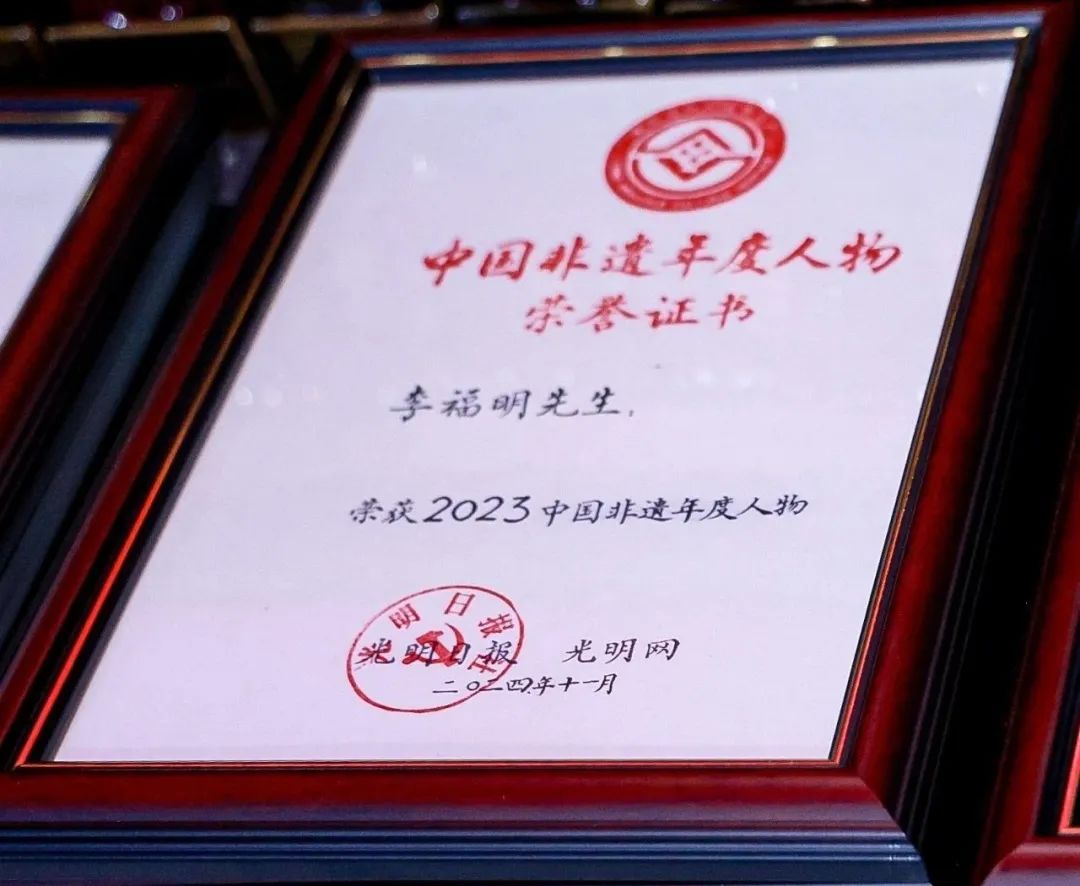 中国非遗年度人物
荣誉证书
李福明先生,
荣获2023中国非遗年度人物
光明日报 光明网
二〇二四年十一月
光明日报社